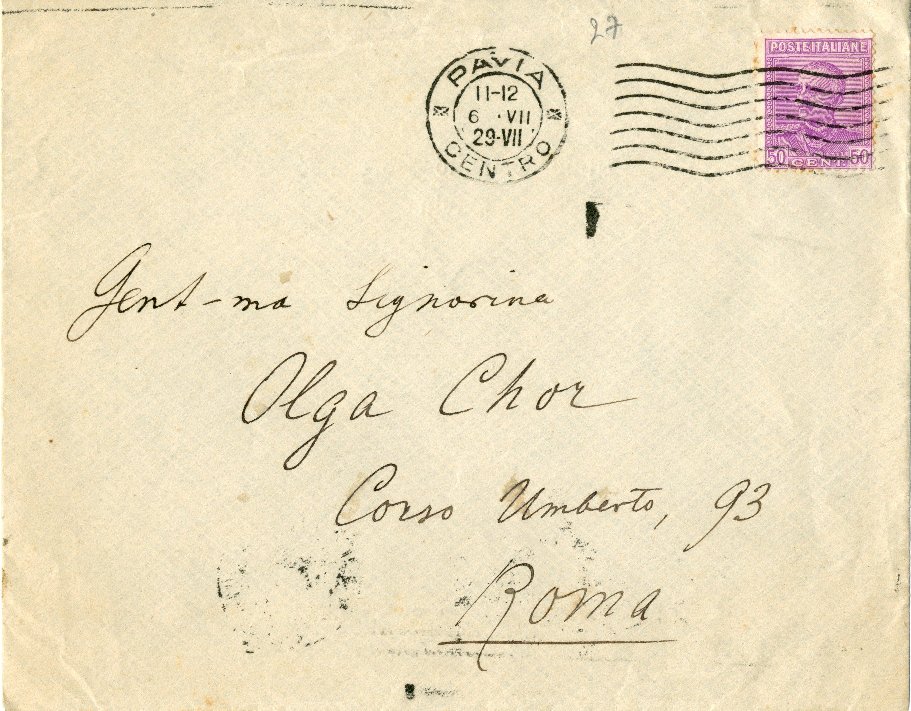 27
PAVIA
11-12
6 · VII
29-VII
CENTRO
POSTE ITALIANE
50 CENT 50
Gent-ma Signorina
Olga Chor
Corso Umberto, 93
Roma